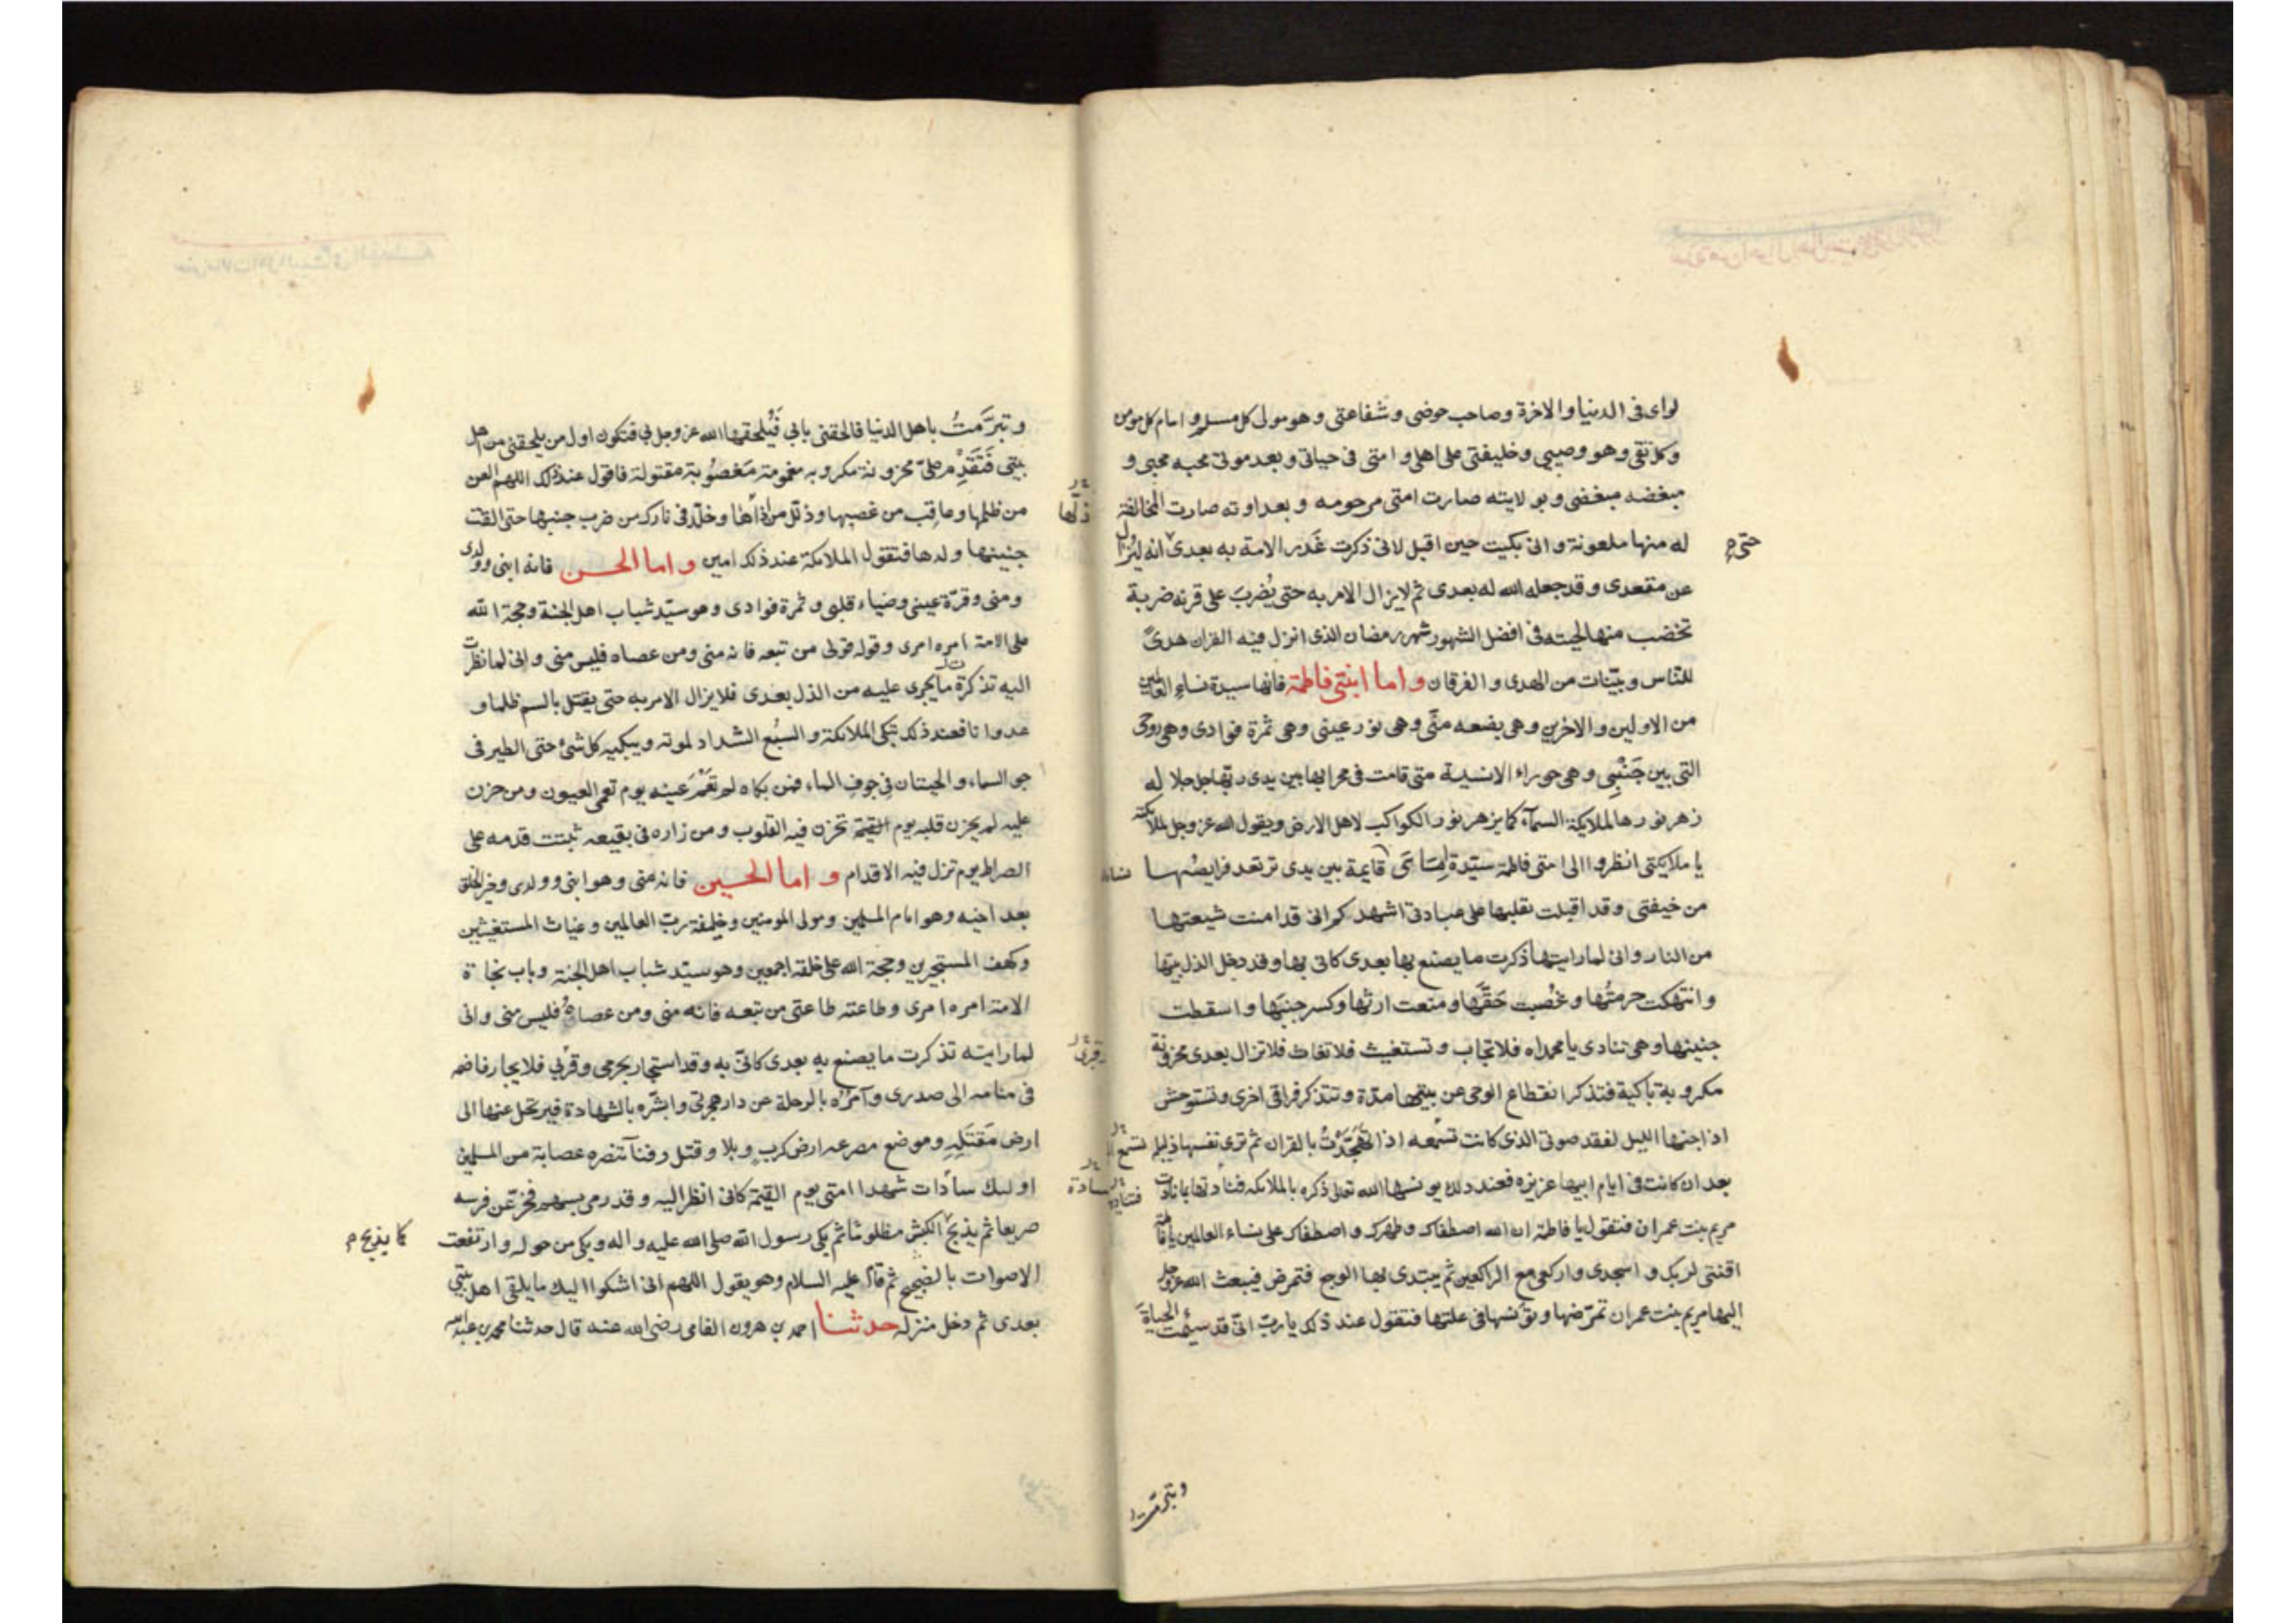 لوای فی الدنیا والاخرة وصاحب حوضی وشفاعتی وهو مولی کل مسلم و امام کل مومن
وکل تقی وهو وصیی وخلیفتی علی اهلی و امتی فی حیاتی وبعد موتی محبه محبی و
مبغضه مبغضی وبولایته صارت امتی مرحومه و بعداوته صارت المخالفة
له منها ملعونة وانی بکیت حین اقبل لانی ذکرت غَدر الامة به بعدی انه لیُزال
حتی م
عن مقعدی وقد جعله الله له بعدی ثم لایزال الامر به حتی یُضربَ علی قرنه ضربة
تخضب منها لحیته فی افضل الشهور شهر رمضان الذی انزل فیه القران هدیً
للناس وبیّنات من الهدی والفرقان و اما ابنتی فاطمة فانها سیدة نساء العالمین
من الاولین والاخرین وهی بضعه منّی وهی نور عینی وهی ثمرة فوادی وهی روحی
التی بین جَنْبِی وهی حوراء الانسیة متی قامت فی محرابها بین یدی ربّها جل جلاله
زهر نورها لملایکة السمآء کما یزهر نور الکواکب لاهل الارض ویقول الله عز وجل لملائکته
یا ملایکتی انظروا الی امتی فاطمة سیّدة اِمَائی قایمة بین یدی ترتعد فرایصُها
من خیفتی وقد اقبلت بقلبها علی عبادتی اشهدکم انی قد امنت شیعتها
من النار وانی لما رایتها ذکرت ما یصنع بها بعدی کانی بها وقد دخل الذل بیتها
وانتهکت حرمتُها وغُصبت حَقَّها ومنعت ارثها وکسر جنبَها واسقطت
جنینها وهی تنادی یا محمداه فلا تجاب وتستغیث فلا تغاث فلا تزال بعدی محزونة
مکروبة باکیة فتذکر انقطاع الوحی عن بیتها مرّة وتتذکر فراقی اخری وتستوحش
اذا جنها اللیل لفقد صوتی الذی کانت تسْمعه اذا تَهَجَّدْتُ بالقران ثم تری نفسها ذلیلة
بعد ان کانت فی ایام ابیها عزیزه فعند ذلک یونسها الله تعالی ذکره بالملائکه فنادتها بما نادت
مریم بنت عمران فتقول یا فاطمة ان الله اصطفاک وطهرک واصطفاک علی نساء العالمین یا فاطمة
اقنتی لربک واسجدی وارکعی مع الراکعین ثم یبتدی بها الوجع فتمرض فیبعث الله عز وجل
الیها مریم بنت عمران تمرّضها وتونسها فی علتها فتقول عند ذلک یا ربّ انّی قد سئمت الحیاةَ
وتبرّمت
وتبرَّمتُ باهل الدنیا فالحقنی بابی فَیُلحقها الله عز وجل بی فتکون اول من یلحقنی من اهل
بیتی فَتقدِمُ علیّ محزونة مکروبه مغمومة مَغصُوبة مقتولة فاقول عند ذلک اللهم العن
من ظلمها وعاقِب من غصبها وذلّل من اذاها وخلّد فی نارک من ضرب جنبها حتی القت
ذلّها
جنینها ولدها فتقول الملائکة عند ذلک امین و اما الحسن فانه ابنی وولدی
ومنی وقرّة عینی وضیاء قلبی وثمرة فوادی وهو سیّد شباب اهل الجنة وحجة الله
علی الامة امره امری وقوله قولی من تبعه فانه منی ومن عصاه فلیس منی وانی لما نظرت
الیه تذکرت ما یجری علیه من الذل بعدی فلا یزال الامر به حتی یقتل بالسم ظلما و
عدوانا فعند ذلک تبکی الملائکة والسبُع الشداد لموته ویبکیه کل شئ حتی الطیر فی
جو السماء والحیتان فی جوف الماء فمن بکاه لم تَعْمَ عینه یوم تعمی العیون ومن حزن
علیه لم یحزن قلبه یوم القیمة تحزن فیه القلوب ومن زاره فی بقیعه ثبتت قدمه علی
الصراط یوم تزل فیه الاقدام و اما الحسین فانه منی وهو ابنی وولدی وخیر الخلق
بعد اخیه وهو امام المسلمین ومولی المومنین وخلیفة ربّ العالمین وغیاث المستغیثین
وکهف المستجیرین وحجة الله علی خلقه اجمعین وهو سیّد شباب اهل الجنة وباب نجاة
الامة امره امری وطاعته طاعتی من تبعه فانه منی ومن عصاهُ فلیس منی وانی
لما رایته تذکرت ما یصنع به بعدی کانیّ به وقد استجار بحرمی وقربی فلا یجار فاضمه
فی منامه الی صدری وآمُرُه بالرحلة عن دار هجرتی وابشّره بالشهادة فیرتحل عنها الی
ارض مَقتَلِهِ وموضع مصرعه ارض کربٍ وبلا وقتل وفنآ تنصره عصابة من المسلمین
اولئک سادات شهدا امتی یوم القیمة کانی انظر الیه وقد رمی بسهم فخرّ عن فرسه
صریعا ثم یذبح الکبش مظلوما ثم بکی رسول الله صلی الله علیه واله وبکی من حوله وارتفعت
کما یذبح م
الاصوات بالضجیج ثم قام علیه السلام وهو یقول اللهم انی اشکوا الیک ما یلقی اهل بیتی
بعدی ثم دخل منزله حدثنا احمد بن هرون الفامی رضی الله عنه قال حدثنا محمد بن عبدالله